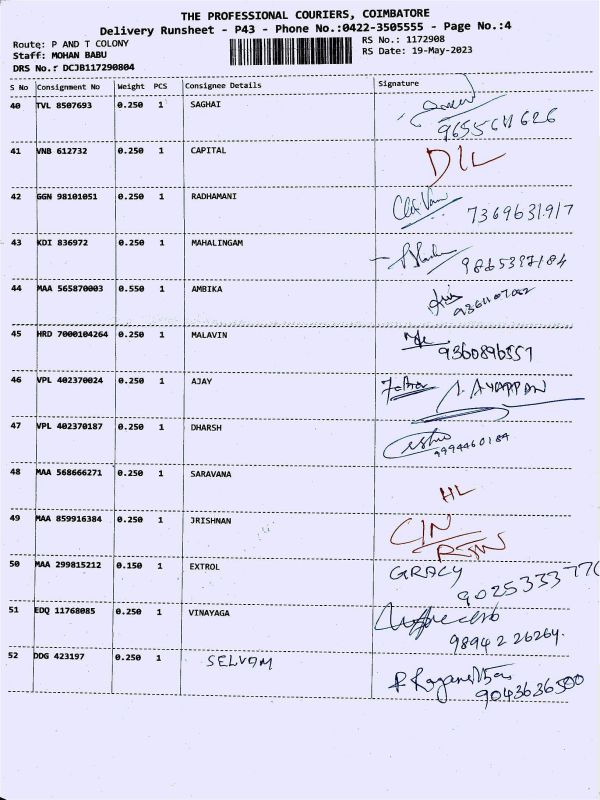 THE PROFESSIONAL COURIERS, COIMBATORE
Delivery Runsheet - P43 - Phone No.:0422-3505555 - Page No.:4
Route: P AND T COLONY RS No.: 1172908
Staff: MOHAN BABU RS Date: 19-May-2023
DRS No.: DCJB117290804
S No Consignment No Weight PCS Consignee Details Signature
40 TVL 8507693 0.250 1 SAGHAI
9655611626
41 VNB 612732 0.250 1 CAPITAL DIL
42 GGN 98101051 0.250 1 RADHAMANI
7369631917
43 KDI 836972 0.250 1 MAHALINGAM
9865397184
44 MAA 565870003 0.550 1 AMBIKA
45 HRD 7000104264 0.250 1 MALAVIN
9360896557
46 VPL 402370024 0.250 1 AJAY AYAPPAN
47 VPL 402370187 0.250 1 DHARSH
9994460184
48 MAA 568666271 0.250 1 SARAVANA
HL
49 MAA 859916384 0.250 1 JRISHNAN C/N
RTN
50 MAA 299815212 0.150 1 EXTROL GRACY
9025333770
51 EDQ 11768085 0.250 1 VINAYAGA
9894226264.
52 DDG 423197 0.250 1 SELVAM
9043636500